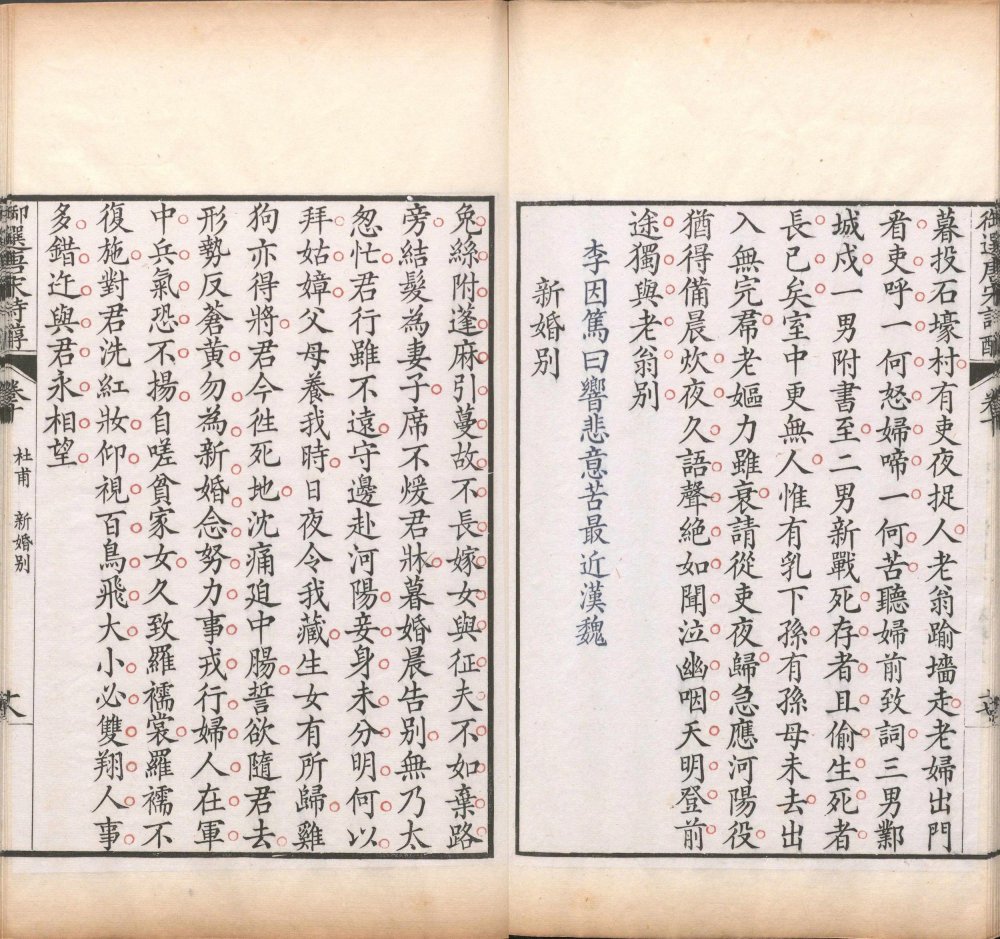 暮投石壕村有吏夜捉人老翁踰墻走老婦出門
看吏呼一何怒婦啼一何苦聽婦前致詞三男鄴
城戍一男附書至二男新戰死存者且偷生死者
長已矣室中更無人惟有乳下孫有孫母未去出
入無完帬老嫗力雖衰請從吏夜歸急應河陽役
猶得備晨炊夜久語聲絕如聞泣幽咽天明登前
途獨與老翁別
李因篤曰響悲意苦最近漢魏
新婚別
兔絲附蓬麻引蔓故不長嫁女與征夫不如棄路
旁結髮為妻子席不煖君牀暮婚晨告別無乃太
怱忙君行雖不遠守邊赴河陽妾身未分明何以
拜姑嫜父母養我時日夜令我藏生女有所歸雞
狗亦得將君今徃死地沈痛迫中腸誓欲隨君去
形勢反蒼黃勿為新婚念努力事戎行婦人在軍
中兵氣恐不揚自嗟貧家女久致羅襦裳羅襦不
復施對君洗紅妝仰視百鳥飛大小必雙翔人事
多錯迕與君永相望
御選唐宋詩醇
卷十
杜甫 新婚別